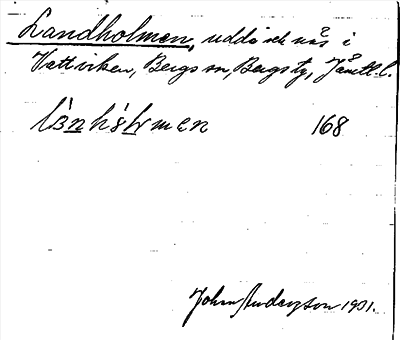 Landholmen, udd och näs i
Vattviken, Bergs sn, Bergs tg, Jämtl. l.
168
John Anderzon 1931.